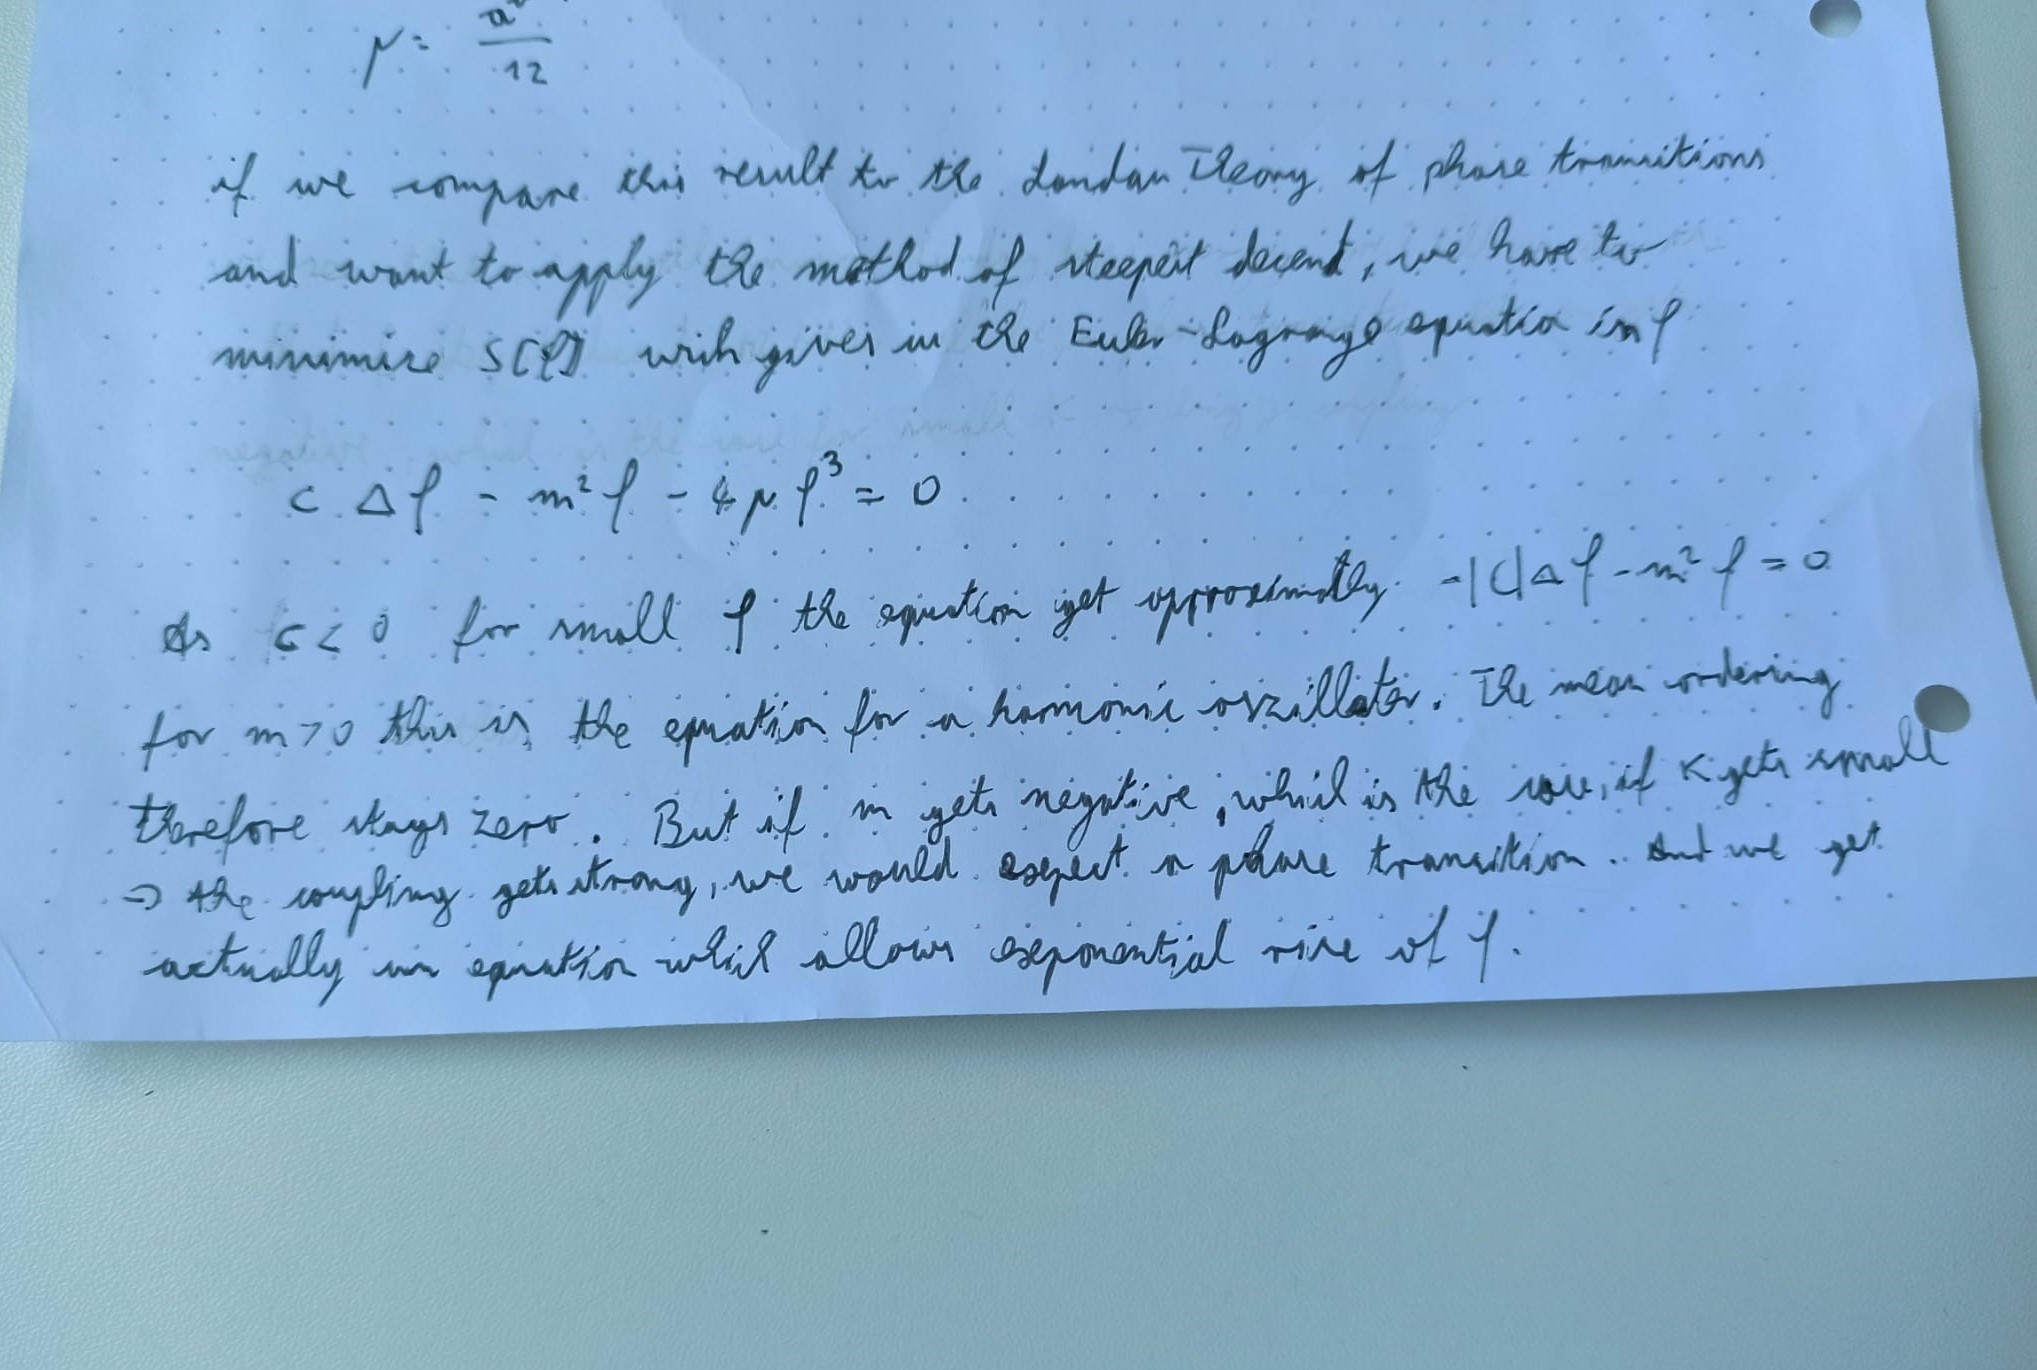 μ = a
12
if we compare this result to the Landau Theory of phase transitions
and want to apply the method of steepest decend, we have to
minimize S[φ] wich gives us the Euler-Lagrange equatio in φ
c Δφ - m² φ - 4 μ φ³ = 0
As c < 0 for small φ the equation get approximatly -|c|Δφ - m² φ = 0
for m > 0 this is the equation for a harmonic oszillator. The mean ordering
therefore stays zero. But if m gets negative, which is the case, if K gets small
→ the coupling gets strong, we would expect a phase transition. And we get
actually an equation which allows exponential rise of φ.